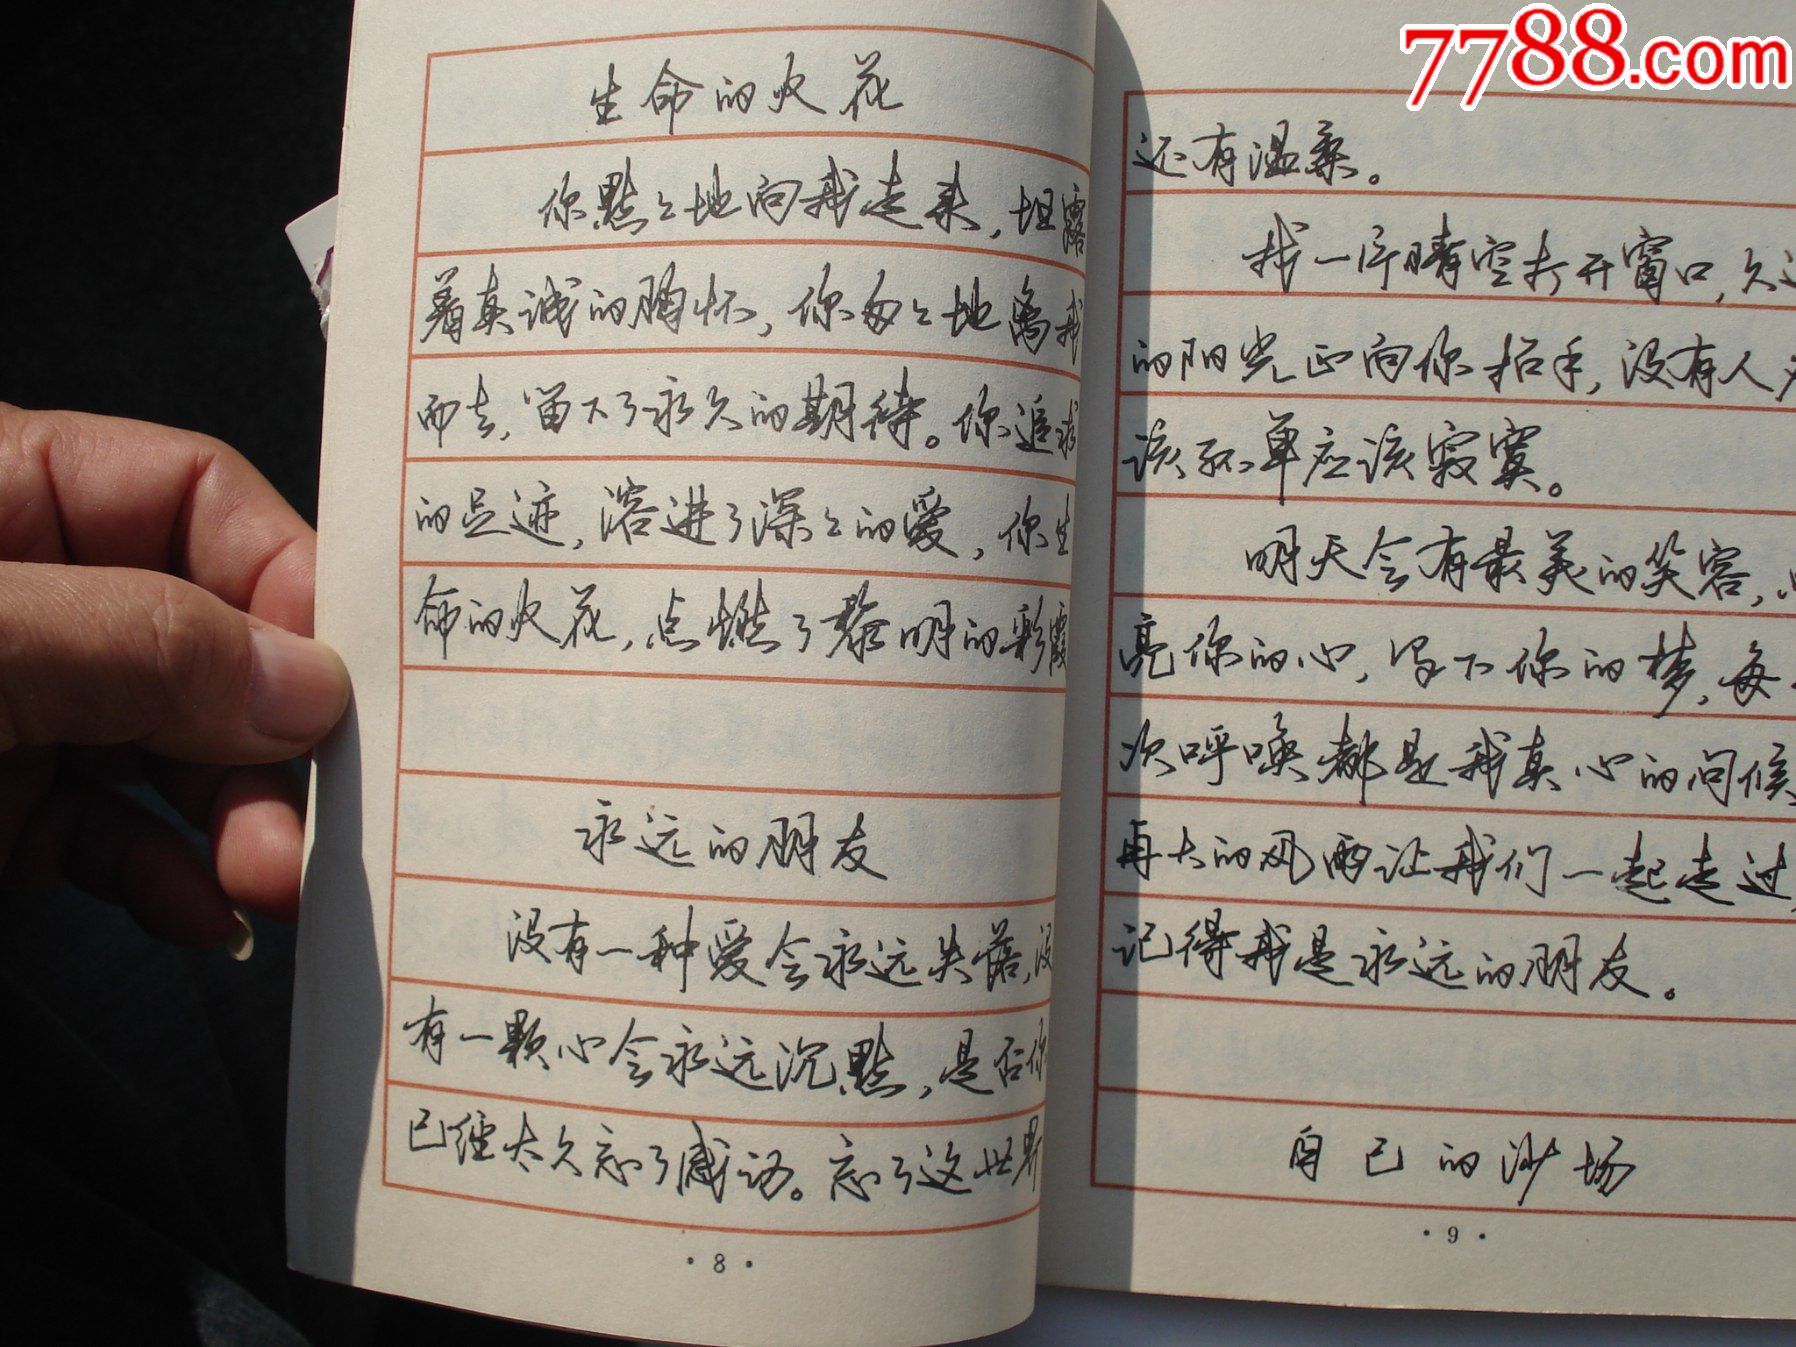 7788.com
生命的火花
你默々地向我走来，坦露
着真诚的胸怀，你匆々地离我
而去，留下了永久的期待。你追求
的足迹，溶进了深々的爱，你生
命的火花，点燃了黎明的彩霞
永远的朋友
没有一种爱会永远失落，没
有一颗心会永远沉默，是否你
已经太久忘了感动。忘了这世界
·8·
还有温柔。
找一片晴空打开窗口，久违
的阳光正向你招手，没有人
该孤单应该寂寞。
明天会有最美的笑容，
亮你的心，写下你的梦，每
次呼唤都是我真心的问候
再大的风雨让我们一起走过，
记得我是永远的朋友。
自己的沙场
·9·